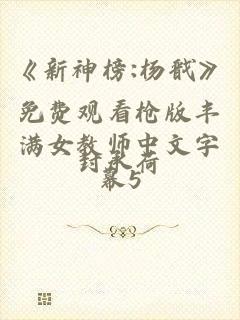 《新神榜:杨戬》
免费观看枪版丰
满女教师中文字
幕5
封承荷